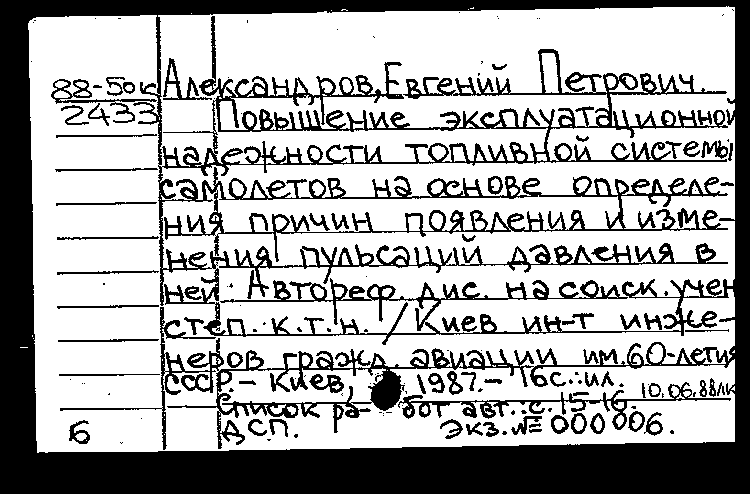 88-50к Александров, Евгений Петрович.
2433 Повышение эксплуатационной
надежности топливной системы
самолетов на основе определе-
ния причин появления и изме-
нения пульсаций давления в
ней: Автореф. дис. на соиск. учен
степ. к.т.н. / Киев. ин-т инже-
неров гражд. авиации им. 60-летия
СССР. - Киев, 1987. - 16с.:ил.
Список ра- бот авт.: с. 15-16. 10.06.88
Б ДСП. Экз. № 000006.